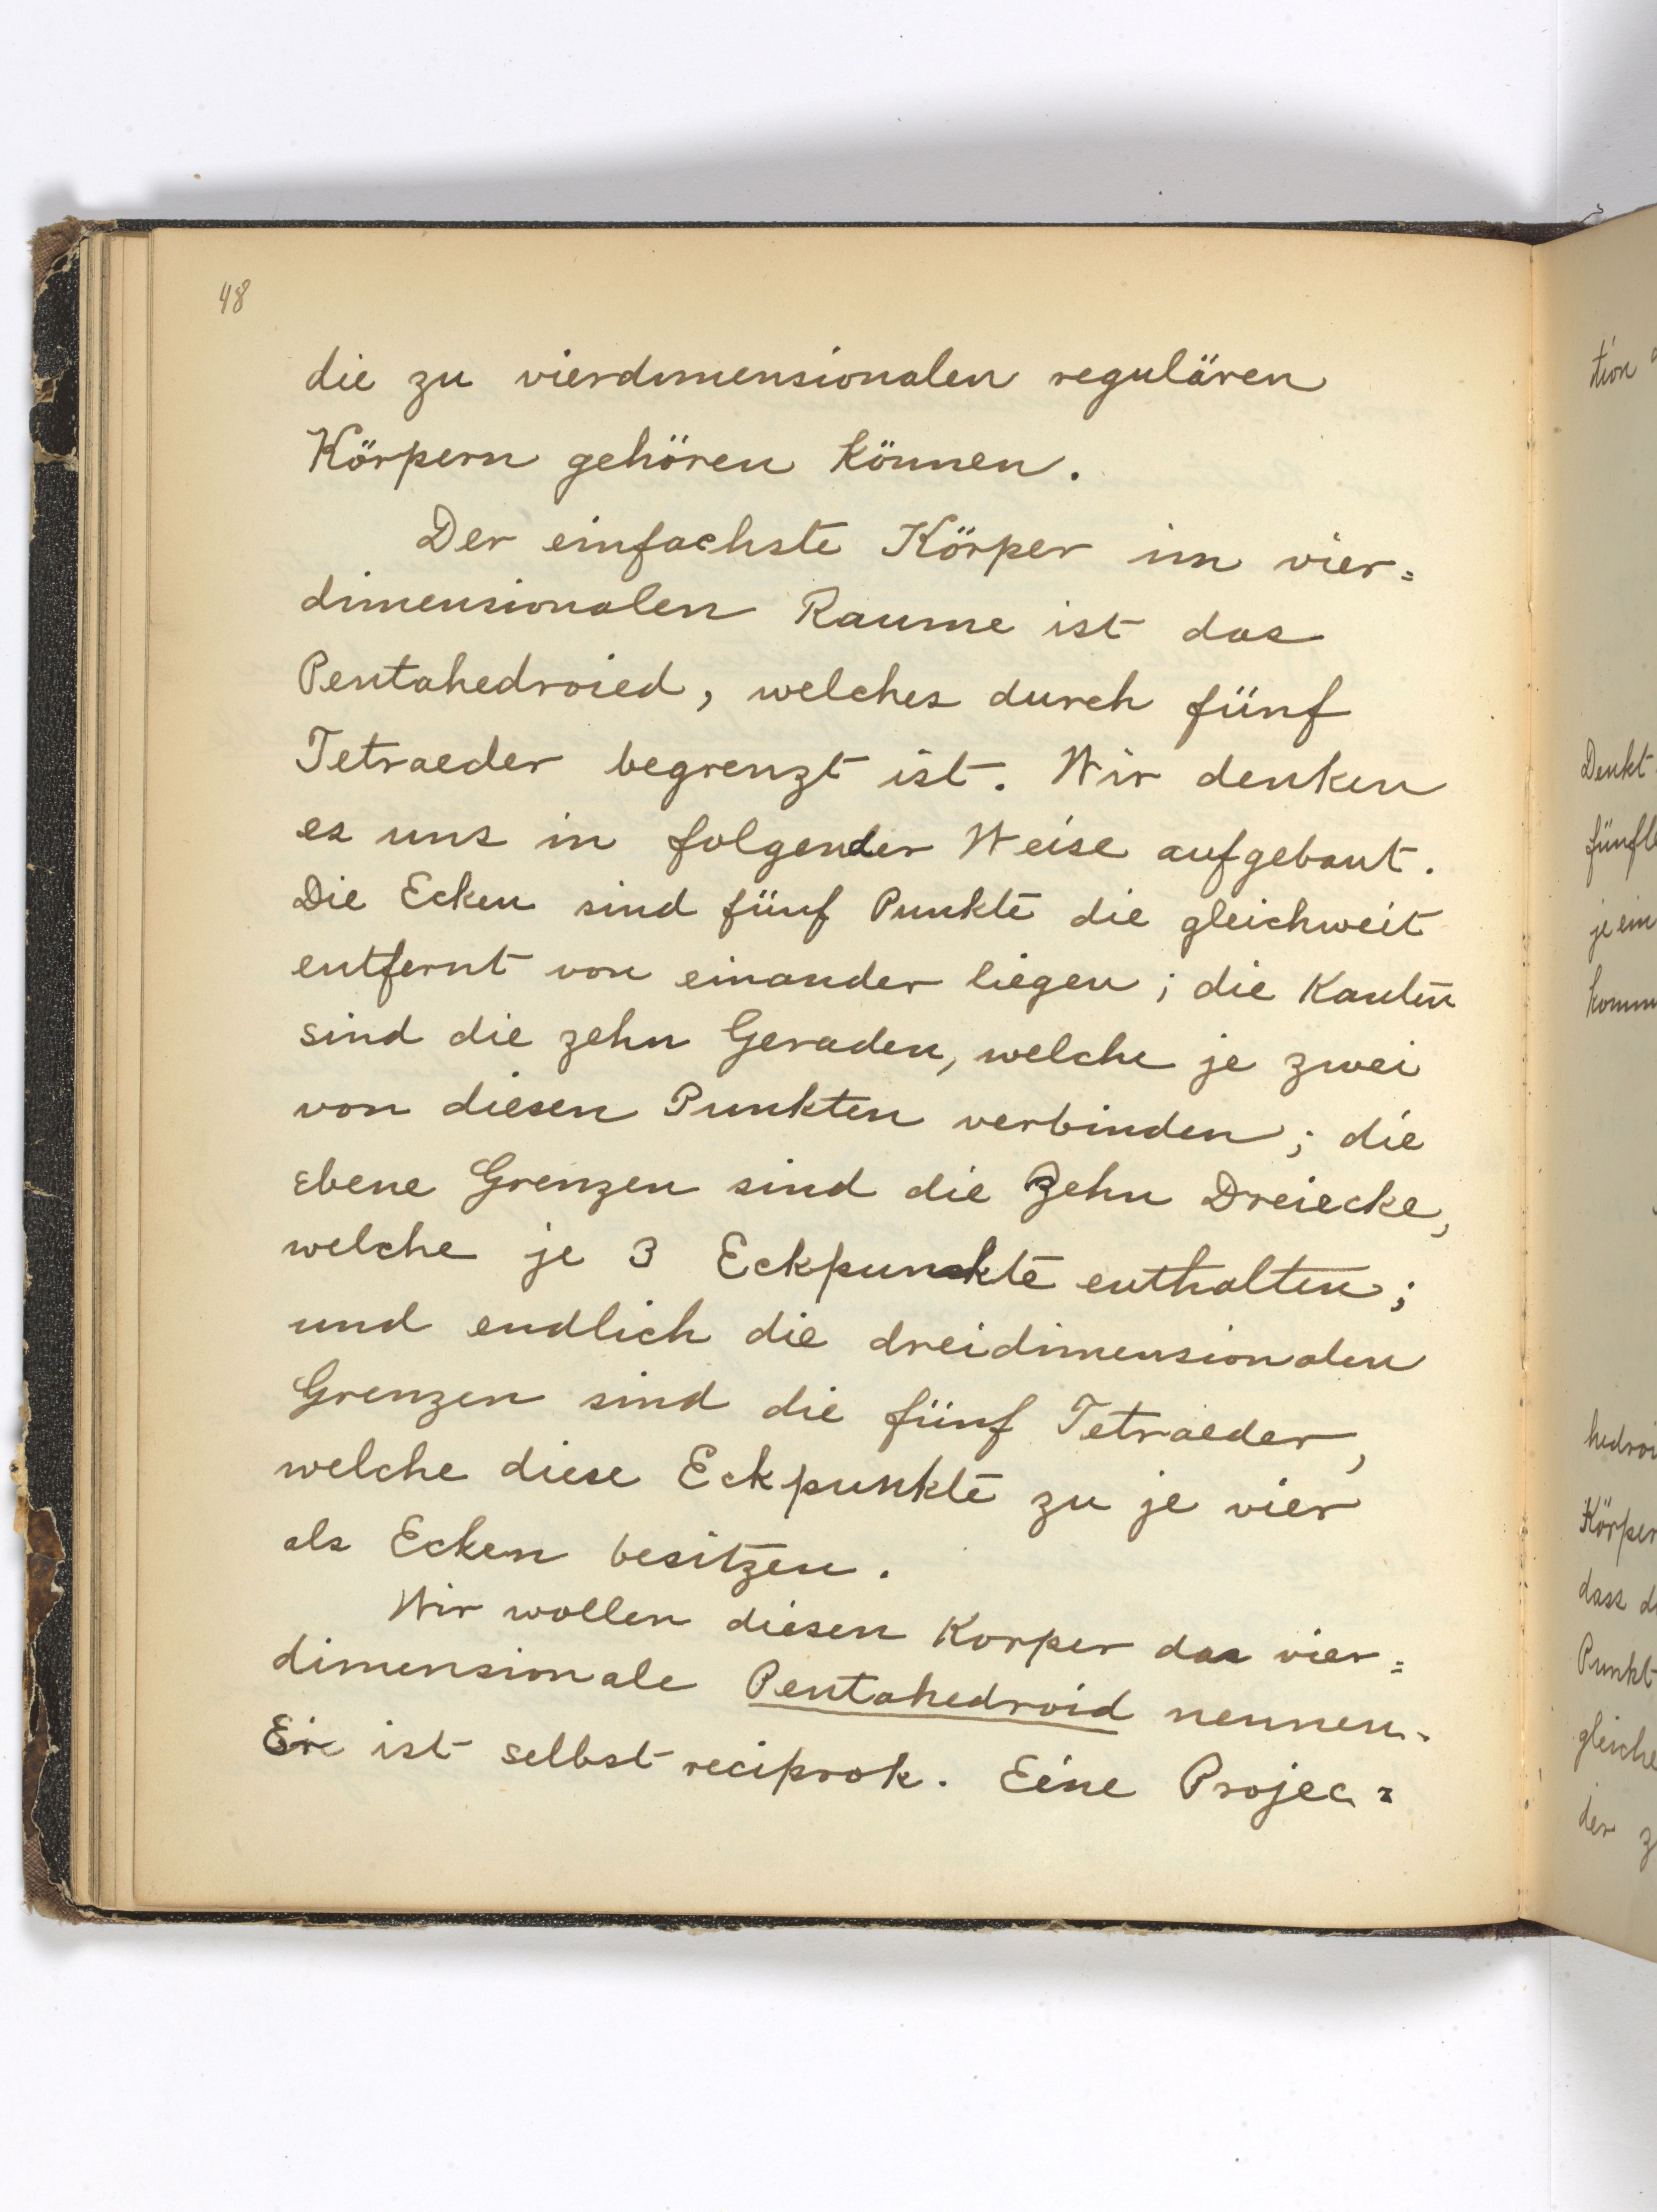 48
die zu vierdimensionalen regulären
Körpern gehören können.
Der einfachste Körper im vier=
dimensionalen Raume ist das
Pentahedroied, welches durch fünf
Tetraeder begrenzt ist. Wir denken
es uns in folgender Weise aufgebaut.
Die Ecken sind fünf Punkte die gleichweit
entfernt von einander liegen; die Kanten
sind die zehn Geraden, welche je zwei
von diesen Punkten verbinden; die
ebene Grenzen sind die zehn Dreiecke,
welche je 3 Eckpunkte enthalten;
und endlich die dreidimensionalen
Grenzen sind die fünf Tetraeder,
welche diese Eckpunkte zu je vier
als Ecken besitzen.
Wir wollen diesen Korper das vier=
dimensionale Pentahedroid nennen.
Er ist selbst reciprok. Eine Projec=
tion
Denkt
fünfle
je ein
komm
hedroi
Körper
dass d
Punkt
gleiche
der z